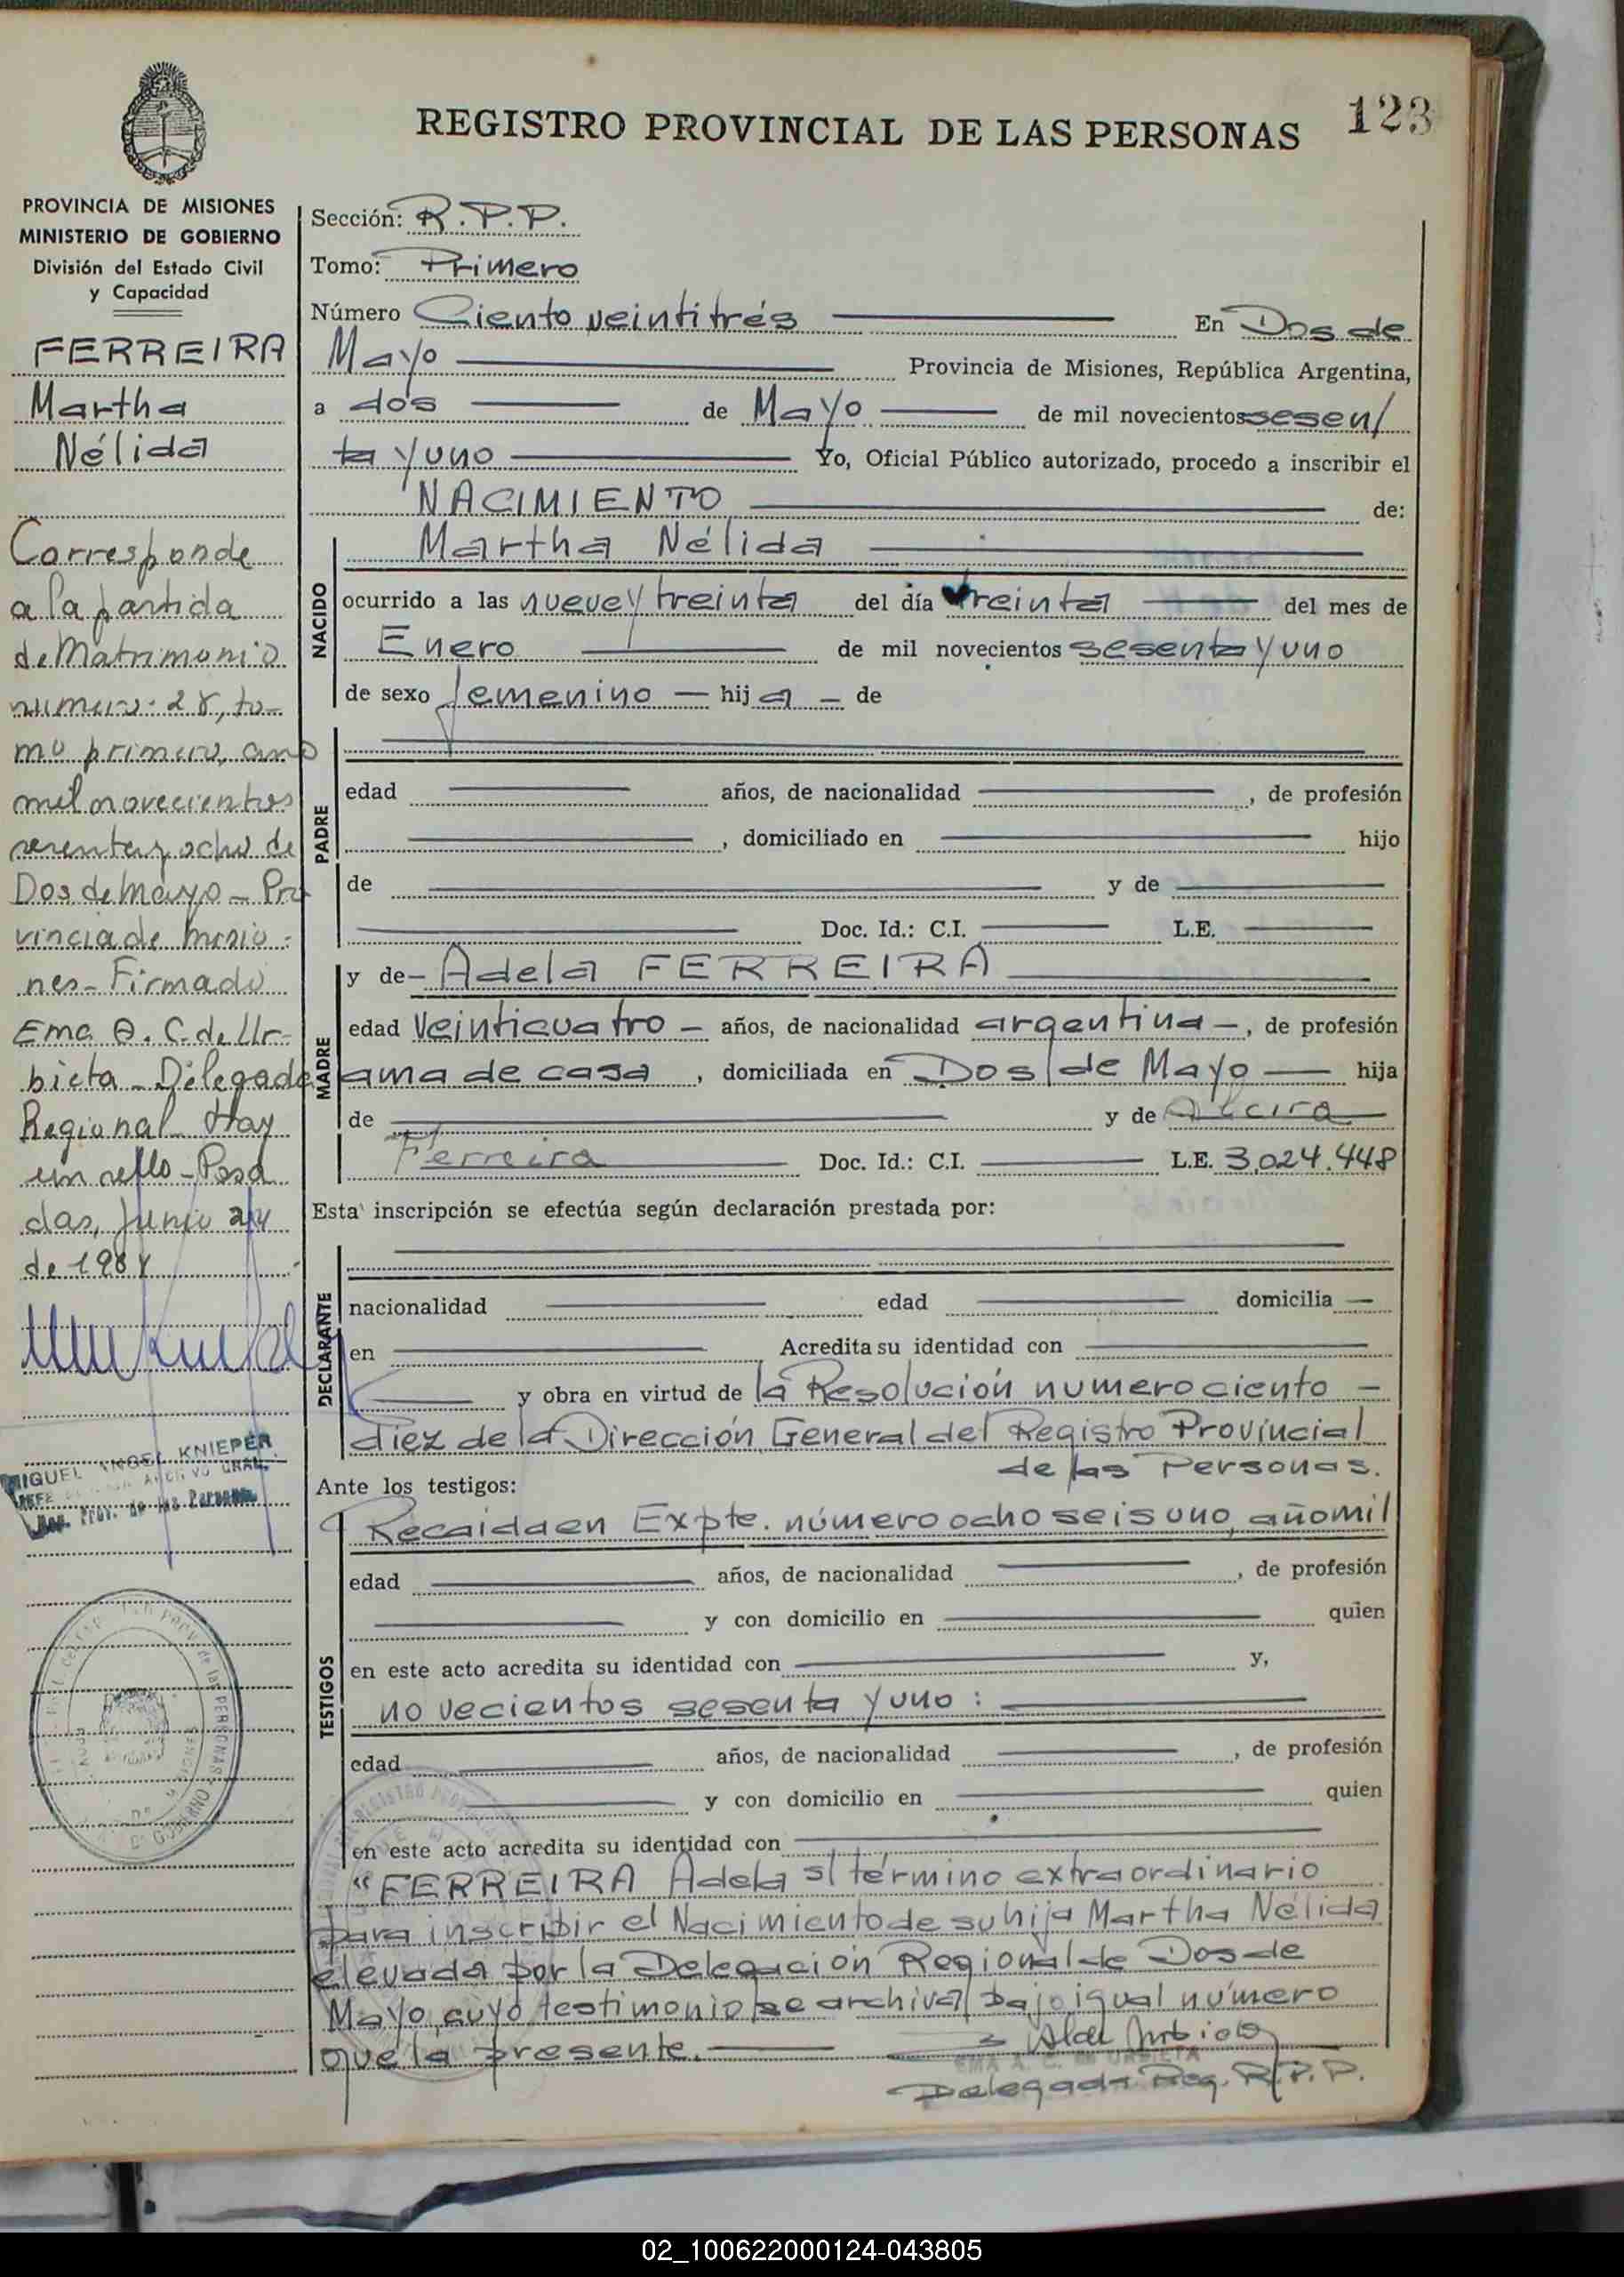 123
REGISTRO PROVINCIAL DE LAS PERSONAS
PROVINCIA DE MISIONES
MINISTERIO DE GOBIERNO
División del Estado Civil
y Capacidad
FERREIRA
Martha
Nélida
Corresponde
a la partida
de Matrimonio
numero 28, to-
mo primero, ano
mil novecientos
y ocho de
Dos de Mayo - Pro
vincia de Misio-
nes - Firmado
Ema A. C. de Ur-
bieta - Delegada
Regional Hay
un sello - Posa
das, Junio 24
de 198
MIGUEL ANGEL KNIEPER
JEFE GRAL.
Prov. de las Personas
Sección: R.P.P.
Tomo: Primero
Número Ciento veintitrés En Dos de
Mayo Provincia de Misiones, República Argentina,
a dos de Mayo de mil novecientos sesen/
ta y uno Yo, Oficial Público autorizado, procedo a inscribir el
NACIMIENTO de:
NACIDO
Martha Nélida
ocurrido a las nueve y treinta del día treinta del mes de
Enero de mil novecientos sesenta y uno
de sexo femenino - hija - de
PADRE
edad años, de nacionalidad , de profesión
, domiciliado en hijo
de y de
Doc. Id.: C.I. L.E.
MADRE
y de - Adela FERREIRA
edad Veinticuatro - años, de nacionalidad argentina -, de profesión
ama de casa , domiciliada en Dos de Mayo - hija
de y de Alcira
Ferreira Doc. Id.: C.I. L.E. 3.024.448
Esta inscripción se efectúa según declaración prestada por:
DECLARANTE
nacionalidad edad domicilia -
en Acredita su identidad con
y obra en virtud de la Resolución numero ciento -
diez de la Dirección General del Registro Provincial
de las Personas.
Ante los testigos:
TESTIGOS
Recaida en Expte. número ocho seis uno, año mil
edad años, de nacionalidad , de profesión
y con domicilio en quien
en este acto acredita su identidad con y,
novecientos sesenta y uno:
edad años, de nacionalidad , de profesión
y con domicilio en quien
en este acto acredita su identidad con
"FERREIRA Adela s/ término extraordinario
para inscribir el Nacimiento de su hija Martha Nélida
elevada por la Delegación Regional de Dos de
Mayo, cuyo testimonio se archiva bajo igual número
que la presente.
EMA A. C. de URBIETA
Delegada Reg. R.P.P.
02_100622000124-043805